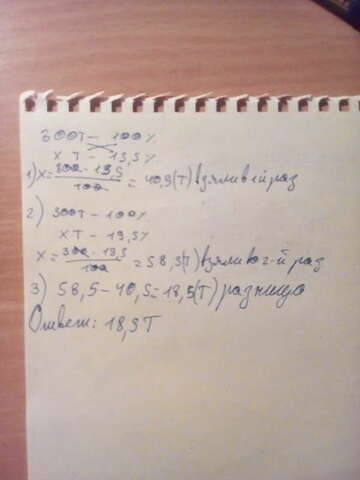 300т - 100%
х т - 13,5%
1) х = 300 · 13,5 / 100 = 40,5(т) взяли в 1й раз
2) 300т - 100%
х т - 19,5%
х = 300 · 19,5 / 100 = 58,5(т) взяли во 2-й раз
3) 58,5 - 40,5 = 18,5(т) разницо
Ответ: 18,5 т